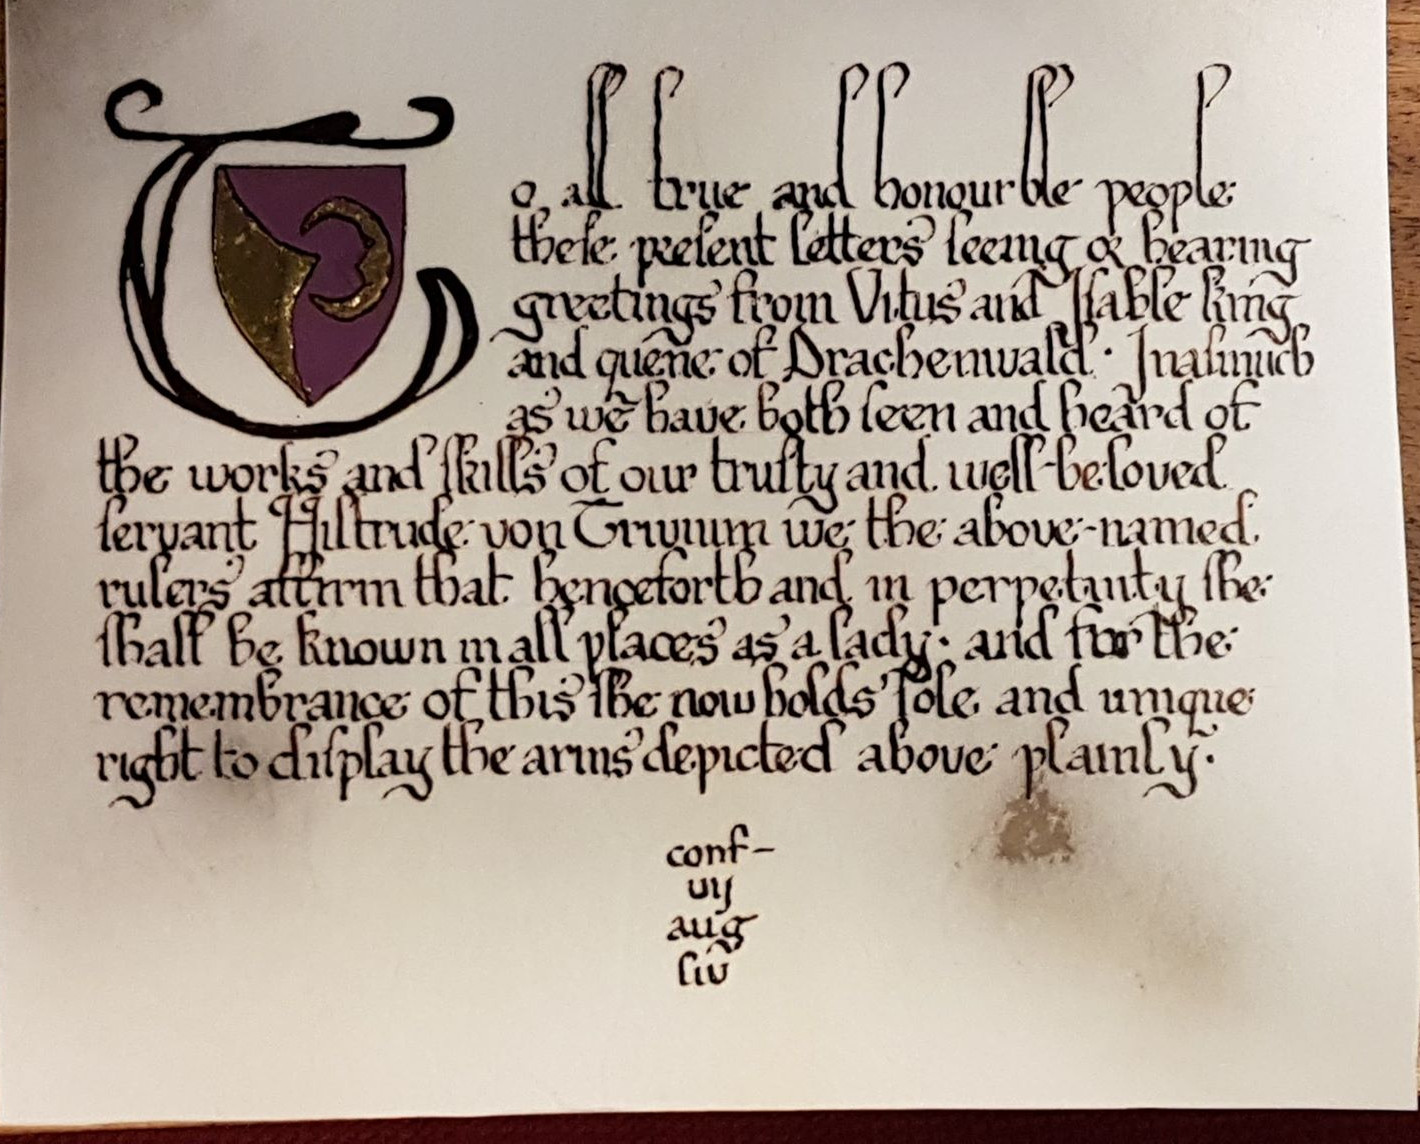 To all true and honourble people
theſe preſent letters ſeeing & hearing
greetings from Vitus and Iſable king
and quene of Drachenwald · Inaſmuch
as we have both ſeen and heard of
the works and ſkills of our truſty and well-beloved
ſervant Hiltrude von Trivium we the above-named
rulers affirm that henceforth and in perpetuity ſhe
ſhall be known in all places as a lady · and for the
remembrance of this ſhe now holds ſole and unique
right to diſplay the arms depicted above plainly ·
conf-
vij
aug
liv